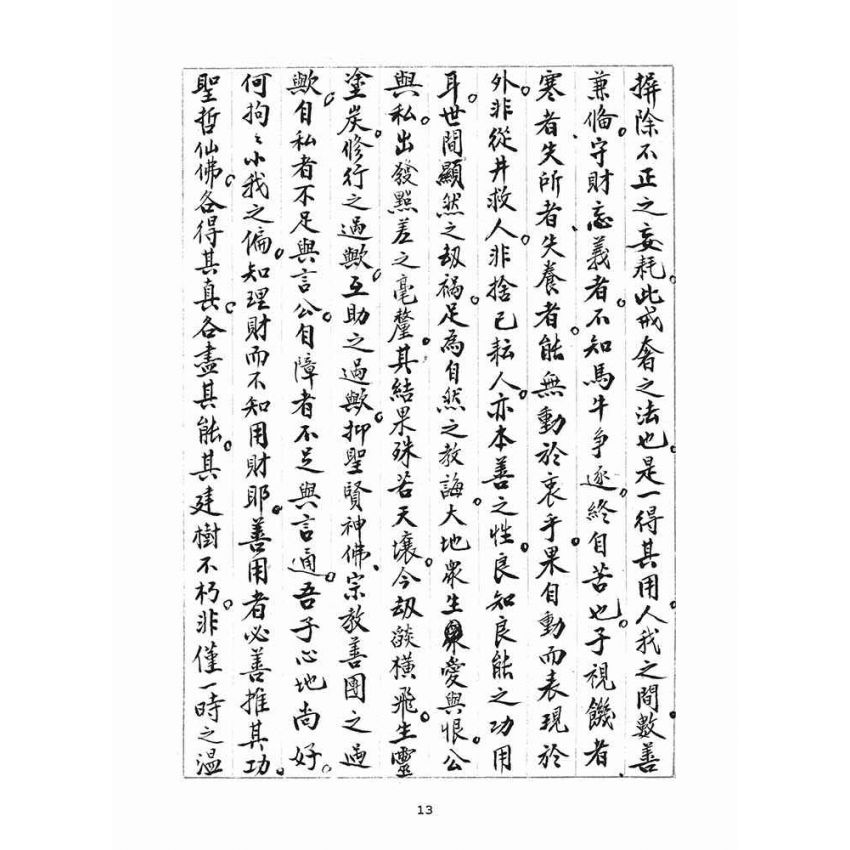 摒除不正之妄耗。此戒奢之法也。是一得其用。人我之間。數善
兼脩。守財忘義者。不知馬牛争逐。終自苦也。子視饑者、
寒者、失所者、失養者。能無動於衷乎。果自動而表現於
外。非從井救人。非捨己耘人。亦本善之性。良知良能之功用
耳。世間顯然之刼禍。足為自然之教誨。大地衆生愛與恨。公
與私。出發點差之毫釐。其結果殊若天壤。今刼燄橫飛。生靈
塗炭。修行之過歟。互助之過歟。抑聖賢神佛、宗教善團之過
歟。自私者不足與言公。自障者不足與言通。吾子心地尚好。
何拘〻小我之偏。知理財而不知用財耶。善用者必善推其功。
聖哲仙佛。各得其真。各盡其能。其建樹不朽。非僅一時之溫
13